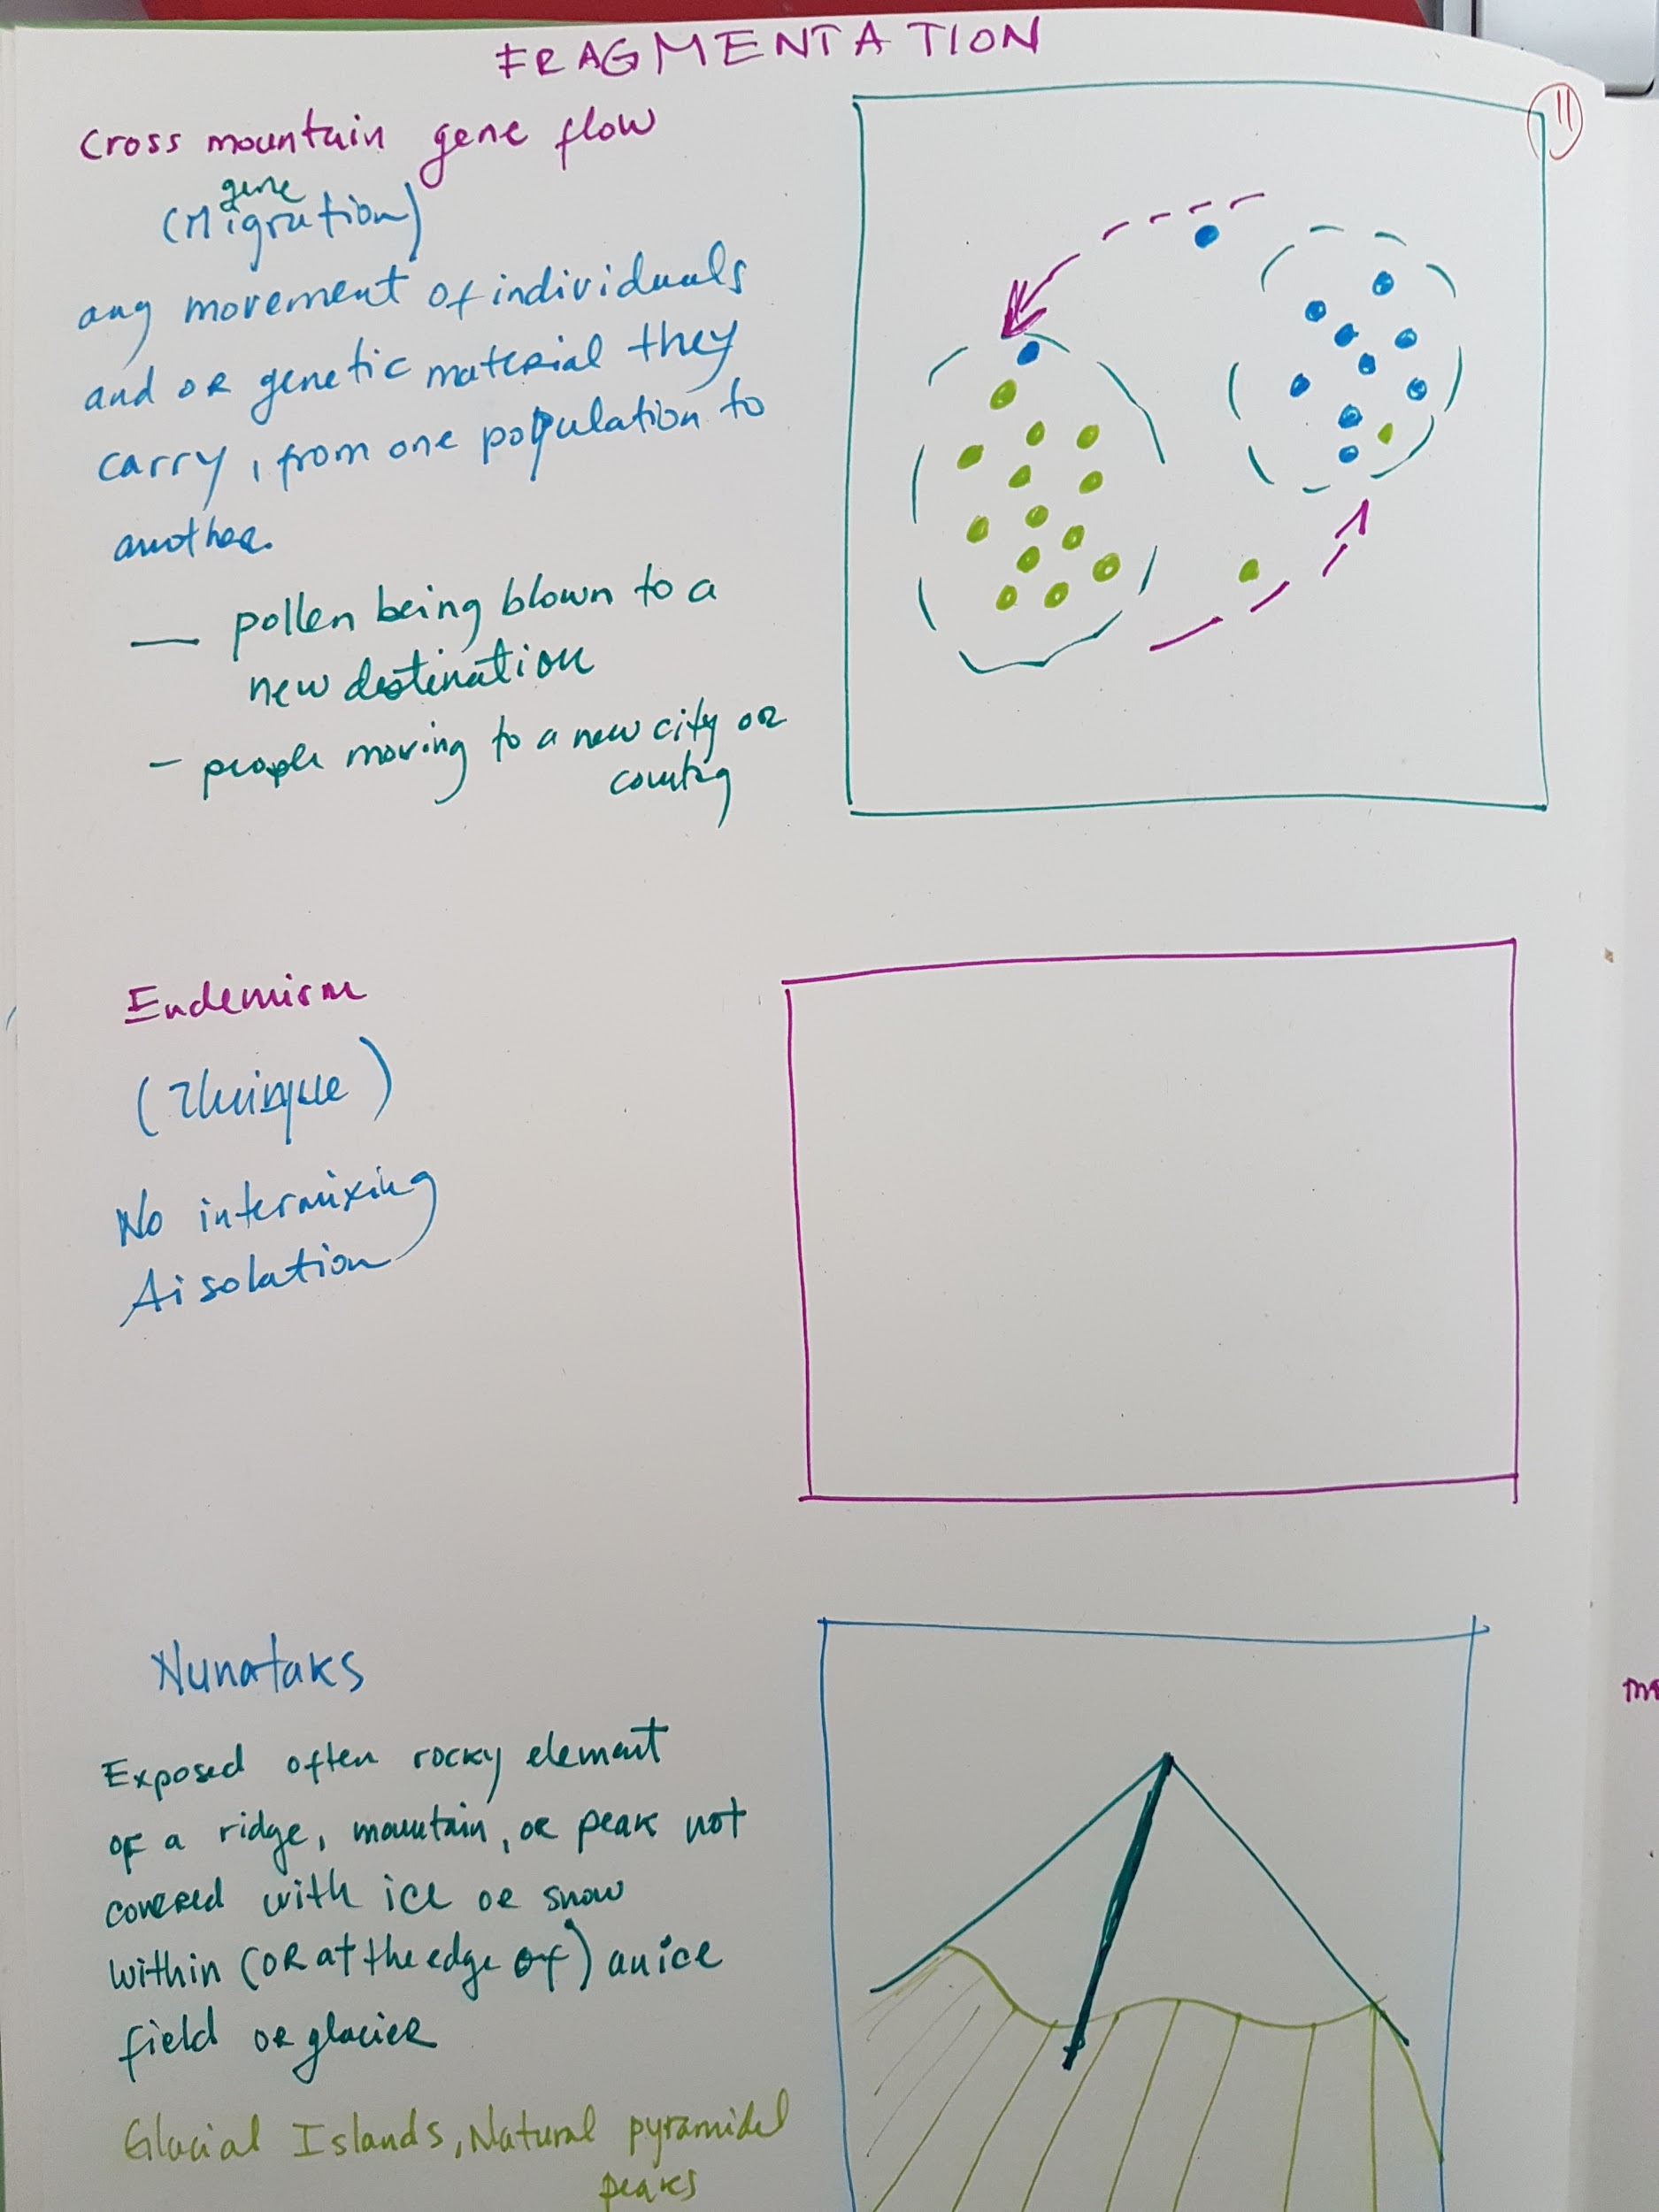 FRAGMENTATION
11
Cross mountain gene flow
gene
(Migration)
any movement of individuals
and or genetic material they
carry, from one population to
another.
— pollen being blown to a
new destination
- people moving to a new city or
country
Endemism
(Unique)
No intermixing
Aisolation
Nunataks
Exposed often rocky element
of a ridge, mountain, or peak not
covered with ice or snow
within (or at the edge of) an ice
field or glacier
Glacial Islands, Natural pyramidel
peaks